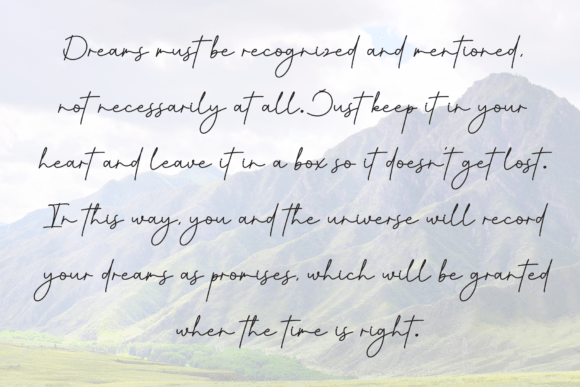 Dreams must be recognized and mentioned,
not necessarily at all. Just keep it in your
heart and leave it in a box so it doesn't get lost.
In this way, you and the universe will record
your dreams as promises, which will be granted
when the time is right.